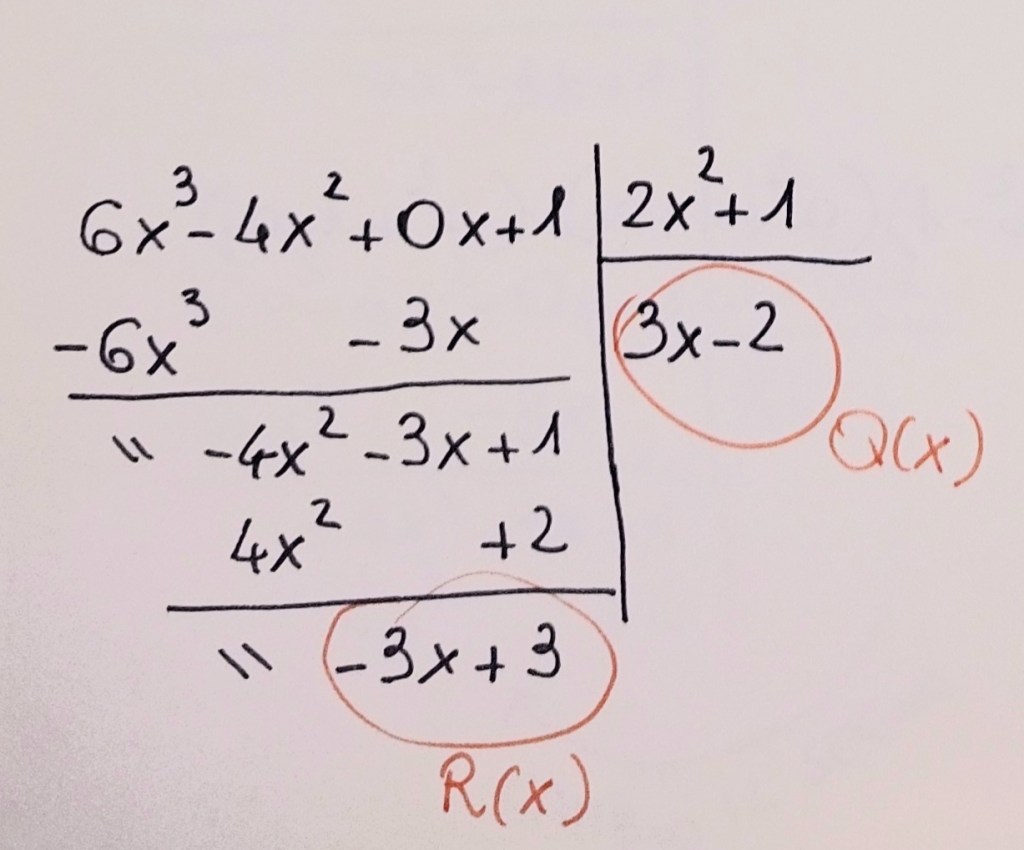 6x³ - 4x² + 0x + 1 | 2x² + 1
-6x³ - 3x | 3x - 2
" -4x² - 3x + 1 Q(x)
4x² + 2
" -3x + 3
R(x)